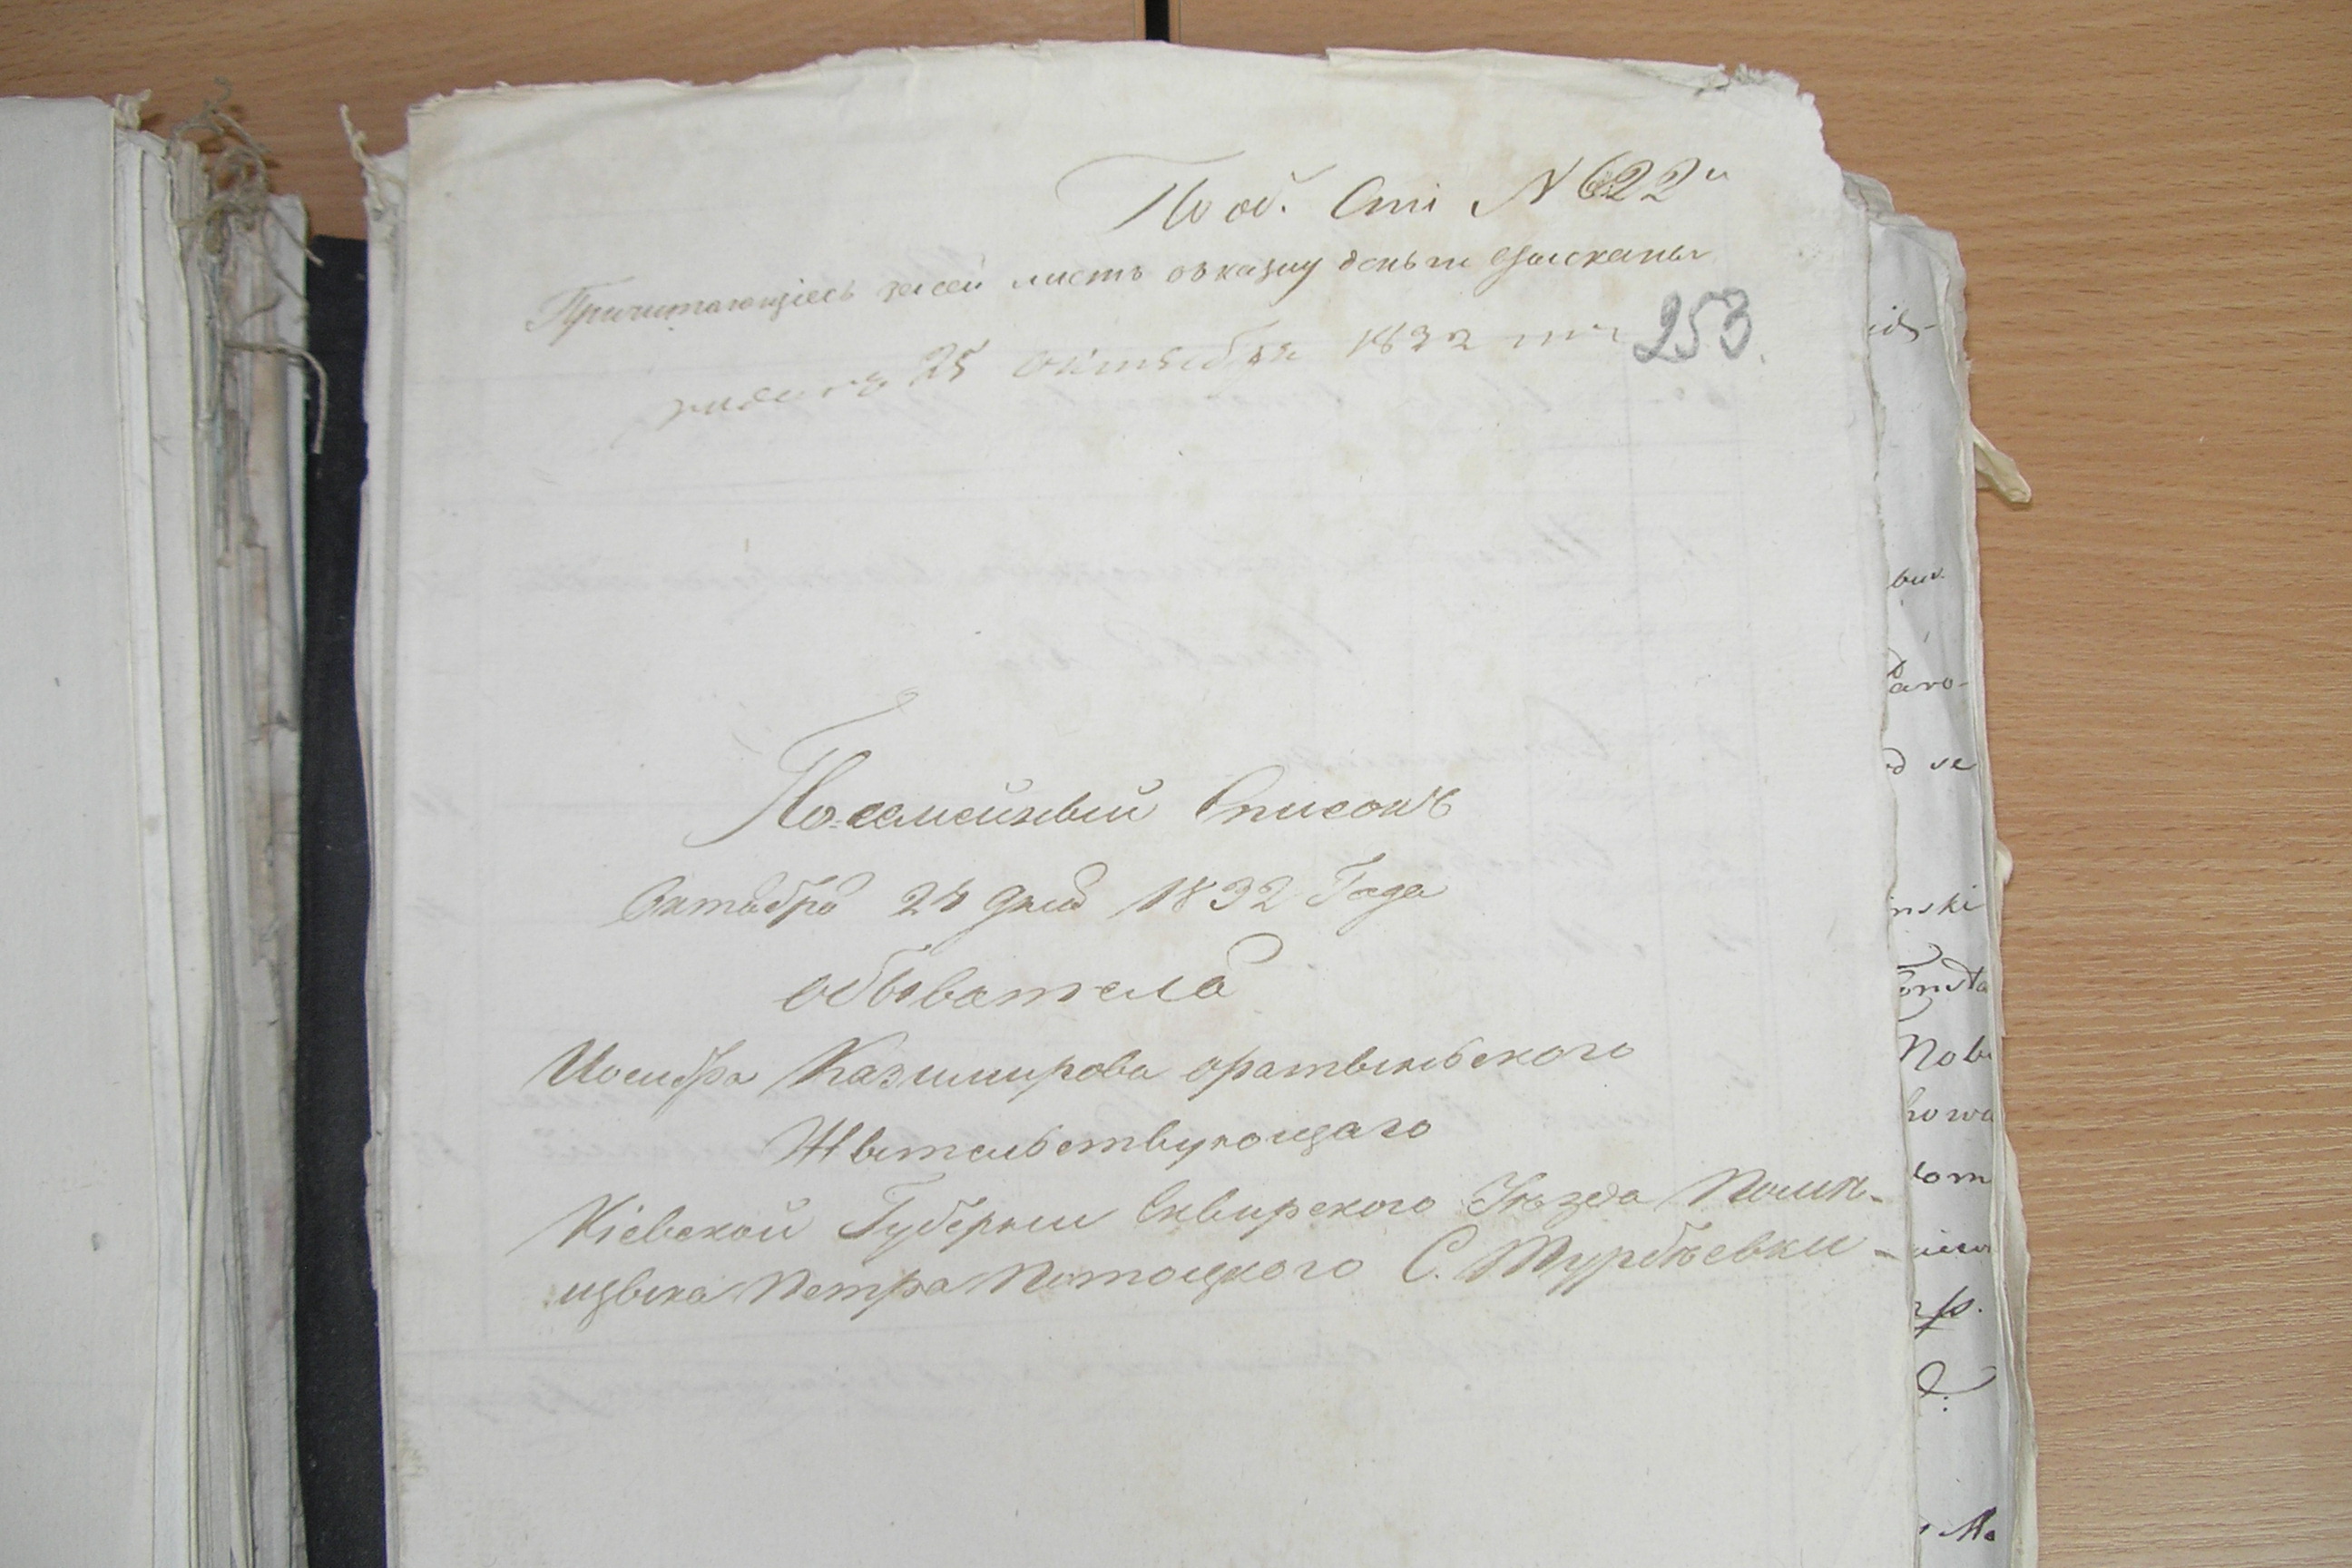 По об. Спі N 622й
Причитающіесь за сей листъ въ казну деньги взысканы
25 октября 1832
253.
По=семейный Списокъ
Октября 24 дня 1832 Года
обывателя
Иосифа Казимирова Фратыньского
Жытельствующаго
Кіевской Губерніи Сквирского Уѣзда Помѣ-
щыка Петра Потоцкого С. Турбѣевки -
ids-
bus
Paro-
d se
nski
onsta
Nob
howa
tom